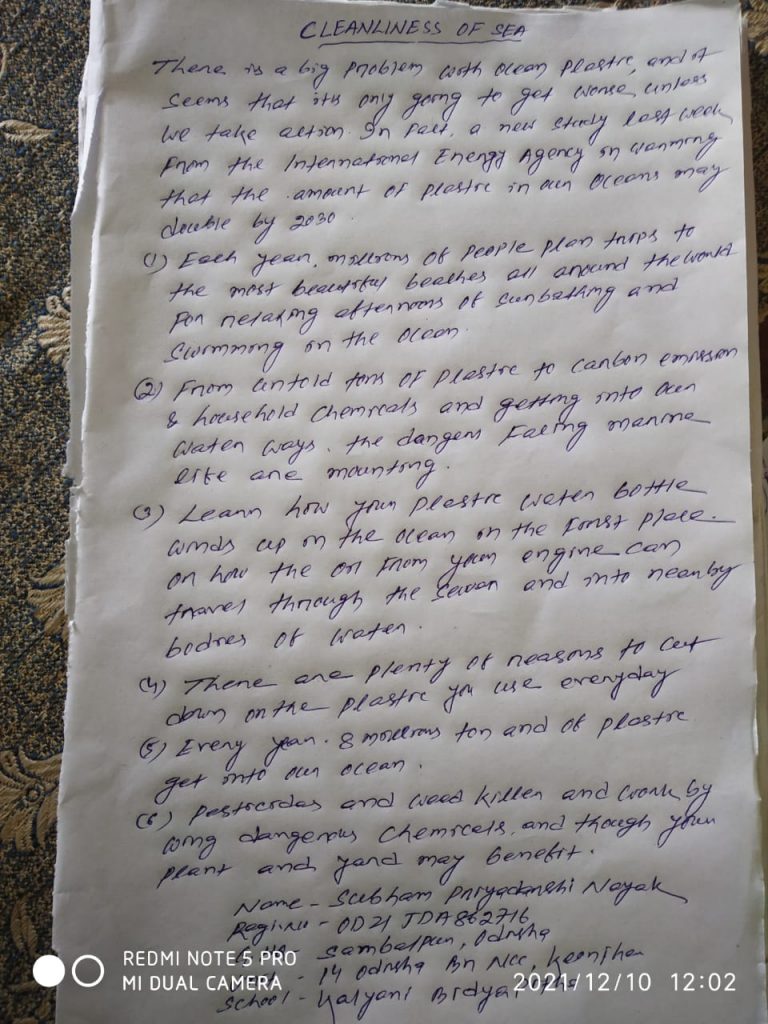 CLEANLINESS OF SEA
There is a big problem with ocean plastic, and it
seems that its only going to get worse unless
we take action. In fact, a new study last week
from the International Energy Agency on warning
that the amount of plastic in our oceans may
double by 2030.
(1) Each year, millions of people plan trips to
the most beautiful beaches all around the world
for relaxing afternoons of sunbathing and
swimming in the ocean.
(2) From untold tons of plastic to carbon emission
& household chemicals and getting into our
water ways. the dangers facing marine
life are mounting.
(3) Learn how your plastic water bottle
winds up in the ocean in the first place.
or how the oil from your engine can
travel through the sewar and into nearby
bodies of water.
(4) There are plenty of reasons to cut
down on the plastic you use everyday
(5) Every year. 8 millions ton and of plastic
get into our ocean.
(6) Pesticides and weed killer and work by
using dangerous chemicals, and though your
plant and yard may benefit.
Name - Subham Priyadarshi Nayak
Regi.No - OD21 JDA862716
- Sambalpur, Odisha
- 14 Odisha Bn NCC, Keonjhar
School - Kalyani Bidya
REDMI NOTE 5 PRO
MI DUAL CAMERA
2021/12/10 12:02